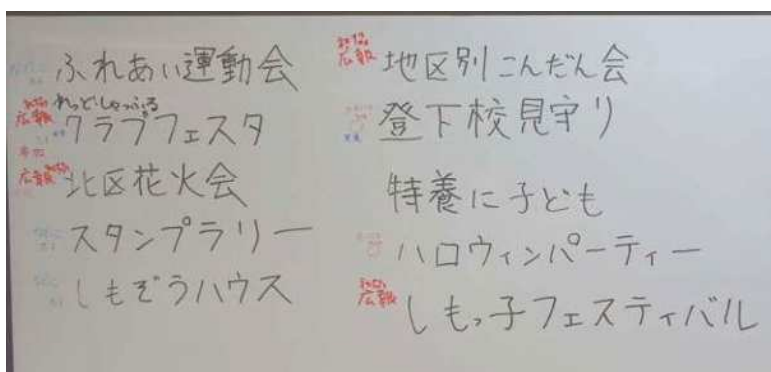 ふれあい運動会
広報
れっどしゃっふる
クラブフェスタ
参加
広報
北区花火会
スタンプラリー
しもぞうハウス
広報
地区別こんだん会
登下校見守り
特養に子ども
ハロウィンパーティー
広報
しもっ子フェスティバル